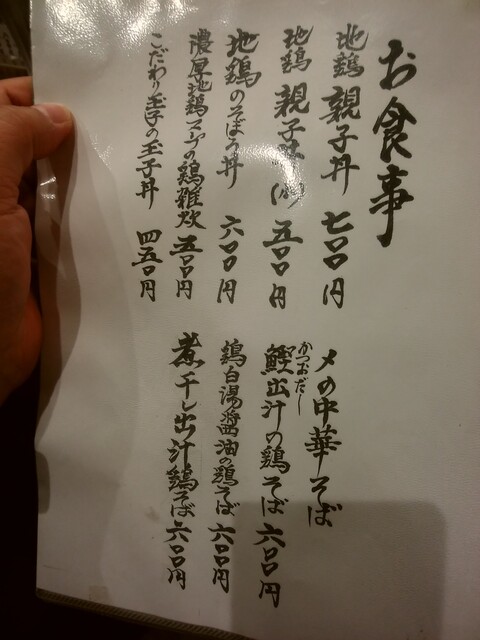 お食事
地鶏親子丼 七〇〇円
地鶏親子丼(小) 五〇〇円
地鶏のそぼろ丼 六〇〇円
濃厚地鶏スープの鶏雑炊 五〇〇円
こだわり玉子の玉子丼 四五〇円
〆の中華そば
かつおだし
鰹出汁の鶏そば 六〇〇円
鶏白湯醤油の鶏そば 六〇〇円
煮干し出汁鶏そば 六〇〇円